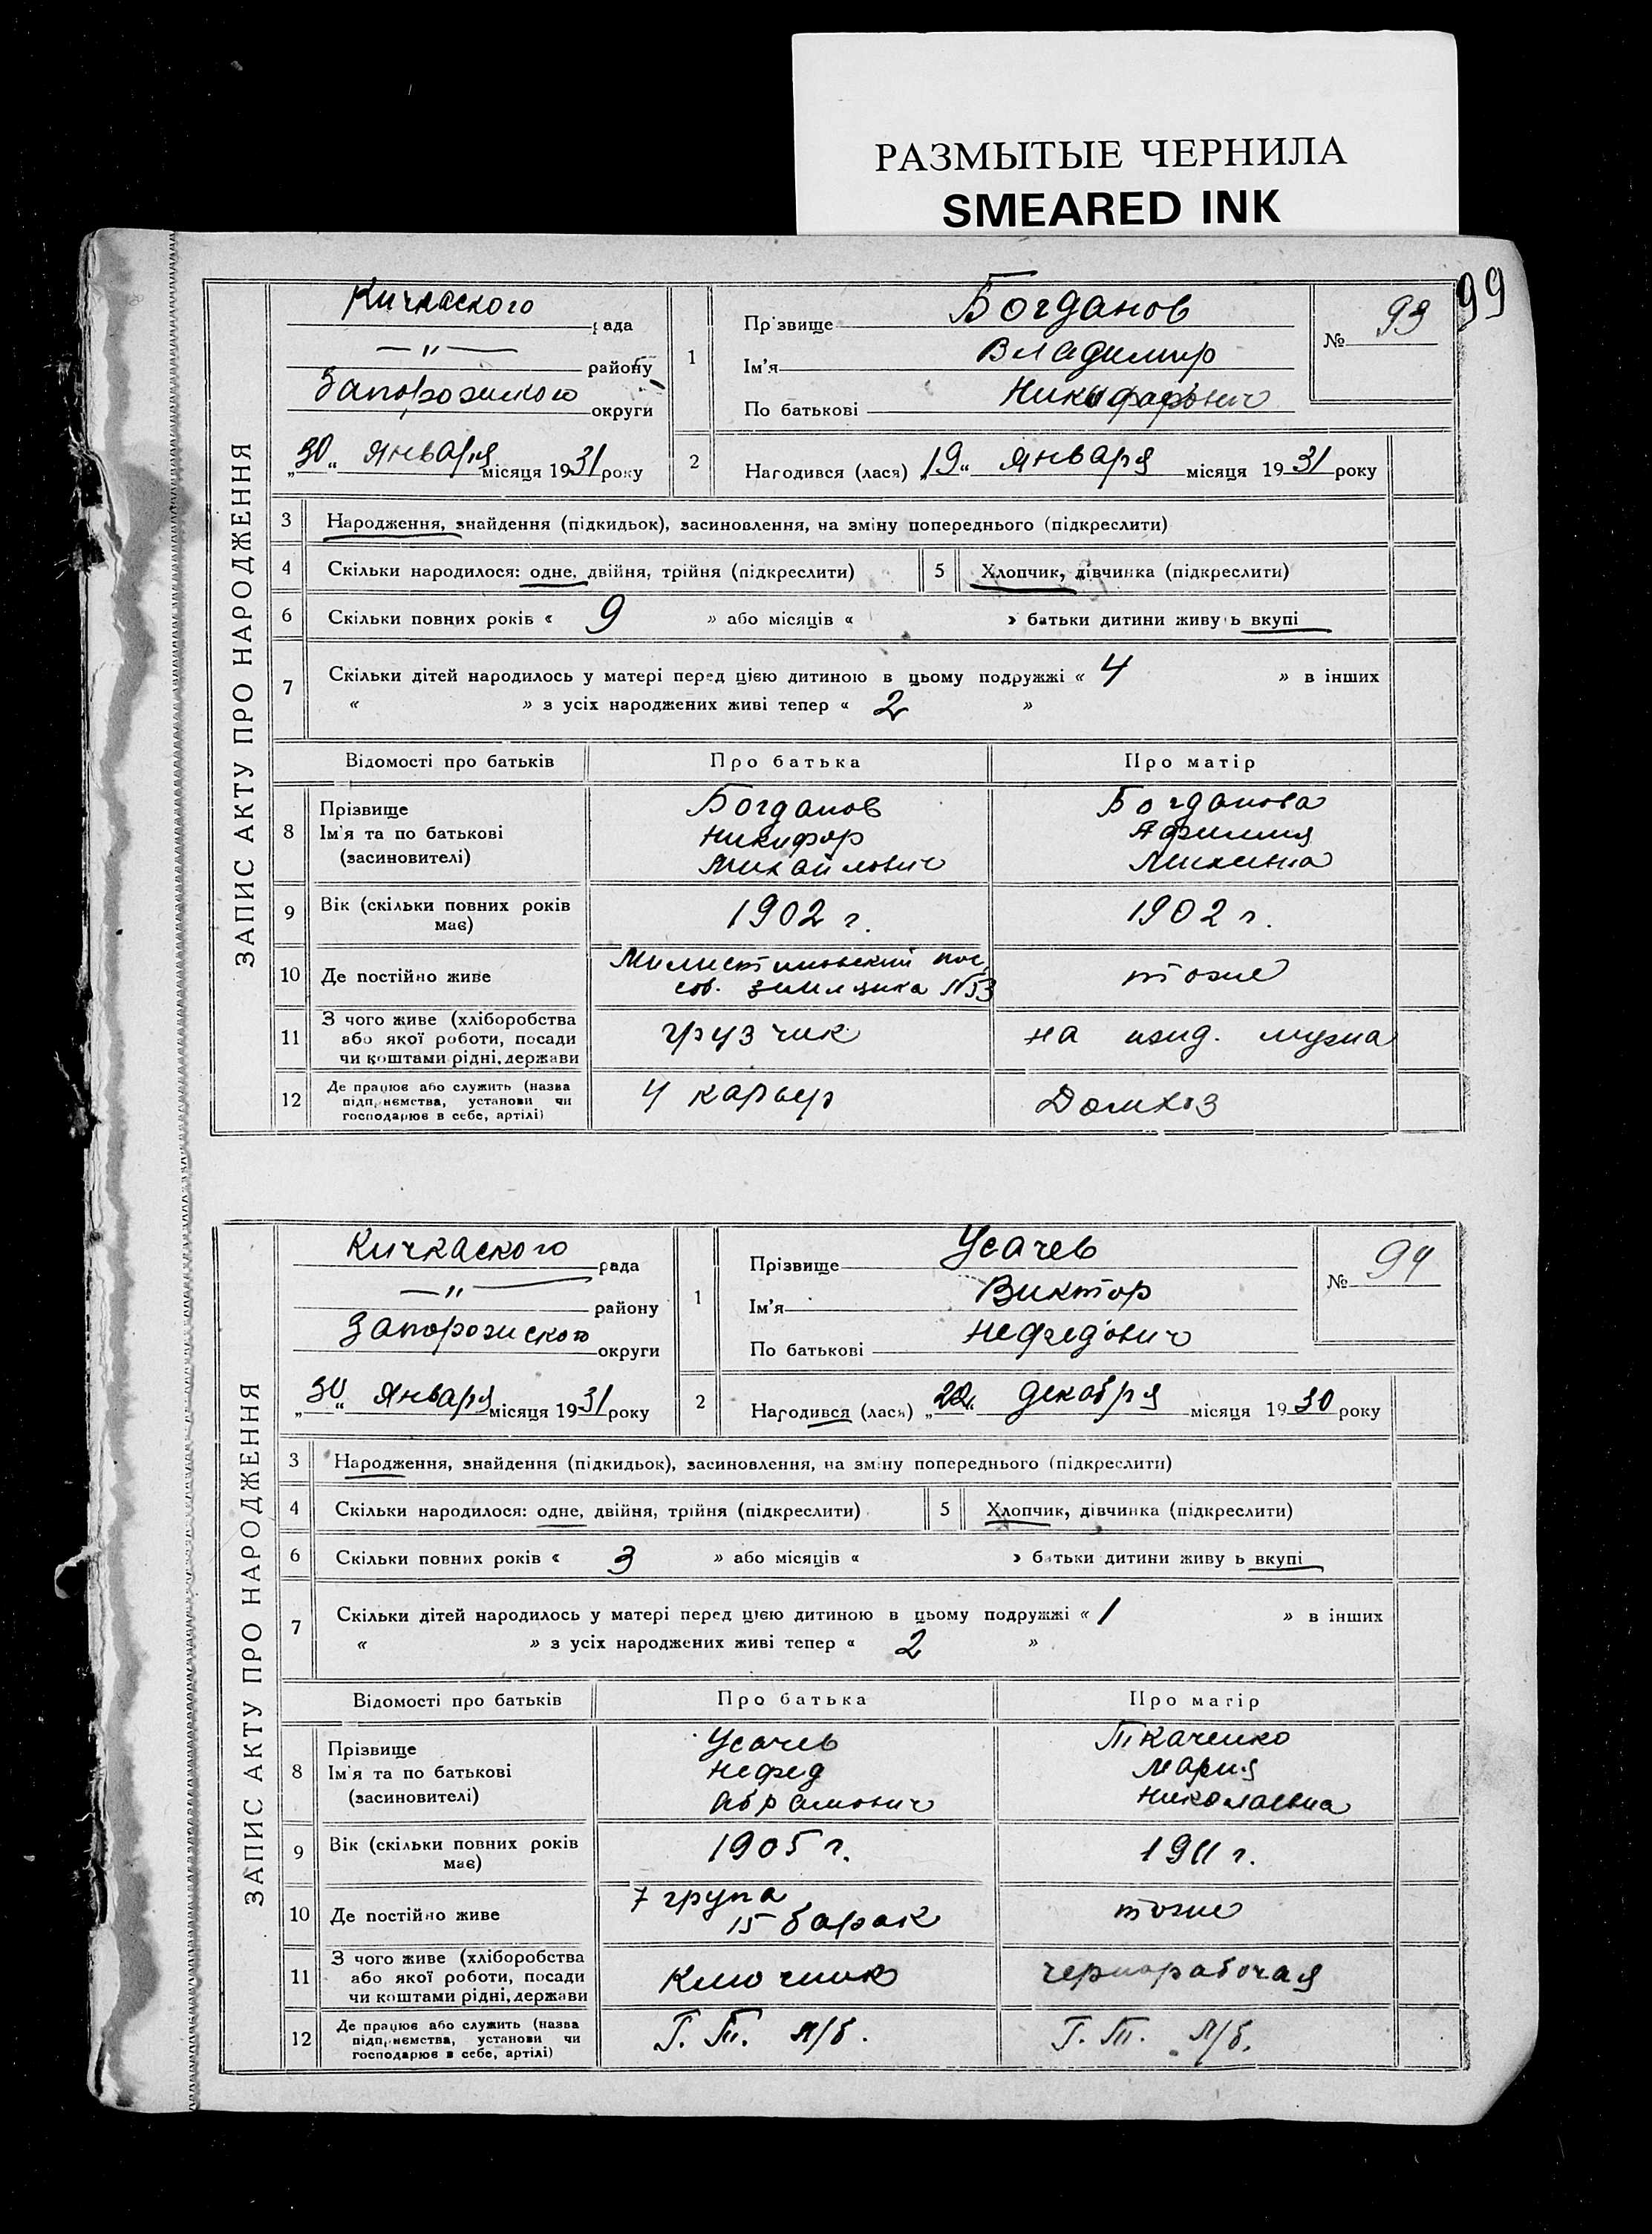 РАЗМЫТЫЕ ЧЕРНИЛА
SMEARED INK
99
ЗАПИС АКТУ ПРО НАРОДЖЕННЯ
Кичкаского рада
—"— району
Запорожского округи
„30“ января місяця 1931 року
1
Прізвище Богданов
Ім'я Владимир
По батькові Никифорович
№ 93
2
Народився (лася) „19“ января місяця 1931 року
3 Народження, знайдення (підкидьок), засиновлення, на зміну попереднього (підкреслити)
4 Скільки народилося: одне, двійня, трійня (підкреслити)
5 Хлопчик, дівчинка (підкреслити)
6 Скільки повних років « 9 » або місяців « » батьки дитини живуть вкупі
7 Скільки дітей народилось у матері перед цією дитиною в цьому подружжі « 4 » в інших
« » з усіх народжених живі тепер « 2 »
Відомості про батьків Про батька Про матір
8 Прізвище
Ім'я та по батькові
(засиновителі)
Богданов
Никифор
Михайлович
Богданова
9 Вік (скільки повних років
має)
1902 г.
1902 г.
10 Де постійно живе
тоже
11 З чого живе (хліборобства
або якої роботи, посади
чи коштами рідні, держави
грузчик
на ижд. мужа
12 Де працює або служить (назва
підприємства, установи чи
господарює в себе, артілі)
4 карьер
Домхоз
ЗАПИС АКТУ ПРО НАРОДЖЕННЯ
Кичкаского рада
—"— району
Запорожского округи
„30“ января місяця 1931 року
1
Прізвище Усачев
Ім'я Виктор
По батькові Нефедович
№ 94
2
Народився (лася) „22“ декабря місяця 1930 року
3 Народження, знайдення (підкидьок), засиновлення, на зміну попереднього (підкреслити)
4 Скільки народилося: одне, двійня, трійня (підкреслити)
5 Хлопчик, дівчинка (підкреслити)
6 Скільки повних років « 3 » або місяців « » батьки дитини живуть вкупі
7 Скільки дітей народилось у матері перед цією дитиною в цьому подружжі « 1 » в інших
« » з усіх народжених живі тепер « 2 »
Відомості про батьків Про батька Про матір
8 Прізвище
Ім'я та по батькові
(засиновителі)
Усачев
Нефед
Абрамович
Ткаченко
Мария
Николаевна
9 Вік (скільки повних років
має)
1905 г.
1911 г.
10 Де постійно живе
7 група
15 барак
тоже
11 З чого живе (хліборобства
або якої роботи, посади
чи коштами рідні, держави
Ключник
чернорабочая
12 Де працює або служить (назва
підприємства, установи чи
господарює в себе, артілі)
Г. Т. Л/б.
Г. Т. Л/б.